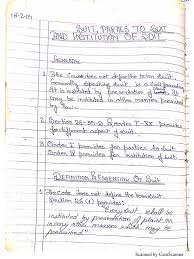 18-2-04
SUIT, PARTIES TO SUIT
AND INSTITUTION OF SUIT
GENERAL
1. The Court does not define the term suit.
Generally speaking suit is a civil
It is instituted by presentation of
be instituted in other manner
by law.
2. Section 26-35-B & Order I-XX
for different aspect of suit.
3. Order I provides for parties to suit
Order II provides for institution of suit.
DEFINITION & ESSENTIAL OF SUIT
The Code does not define the term suit
Section 26 (1) provides:
"Every suit shall be
instituted by presentation of plaint or
in any other manner which may be
prescribed"
Scanned by CamScanner